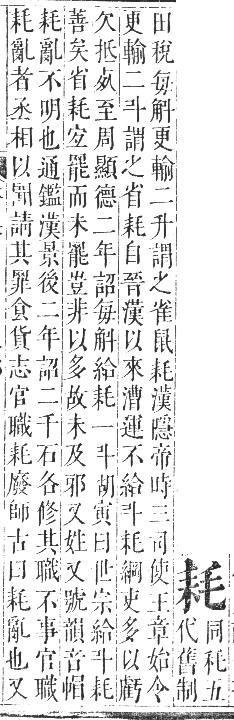 耗
同秏五
代舊制
田稅每斛更輸二升謂之雀鼠耗漢隱帝時三司使王章始令
更輸二斗謂之省耗自晉漢以來漕運不給斗耗綱吏多以虧
欠抵死至周顯德二年詔每斛給耗一斗胡寅曰世宗給斗耗
善矣省耗宜罷而未罷豈非以多故未及邪又姓又號韻音帽
耗亂不明也通鑑漢景後二年詔二千石各修其職不事官職
耗亂者丞相以聞請其罪食貨志官職耗廢師古曰耗亂也又